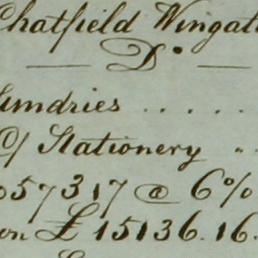 Chatfield Wingat
Do.
Sundries ....
C/ Stationery ..
57317 @ 6%
on £15136.16.